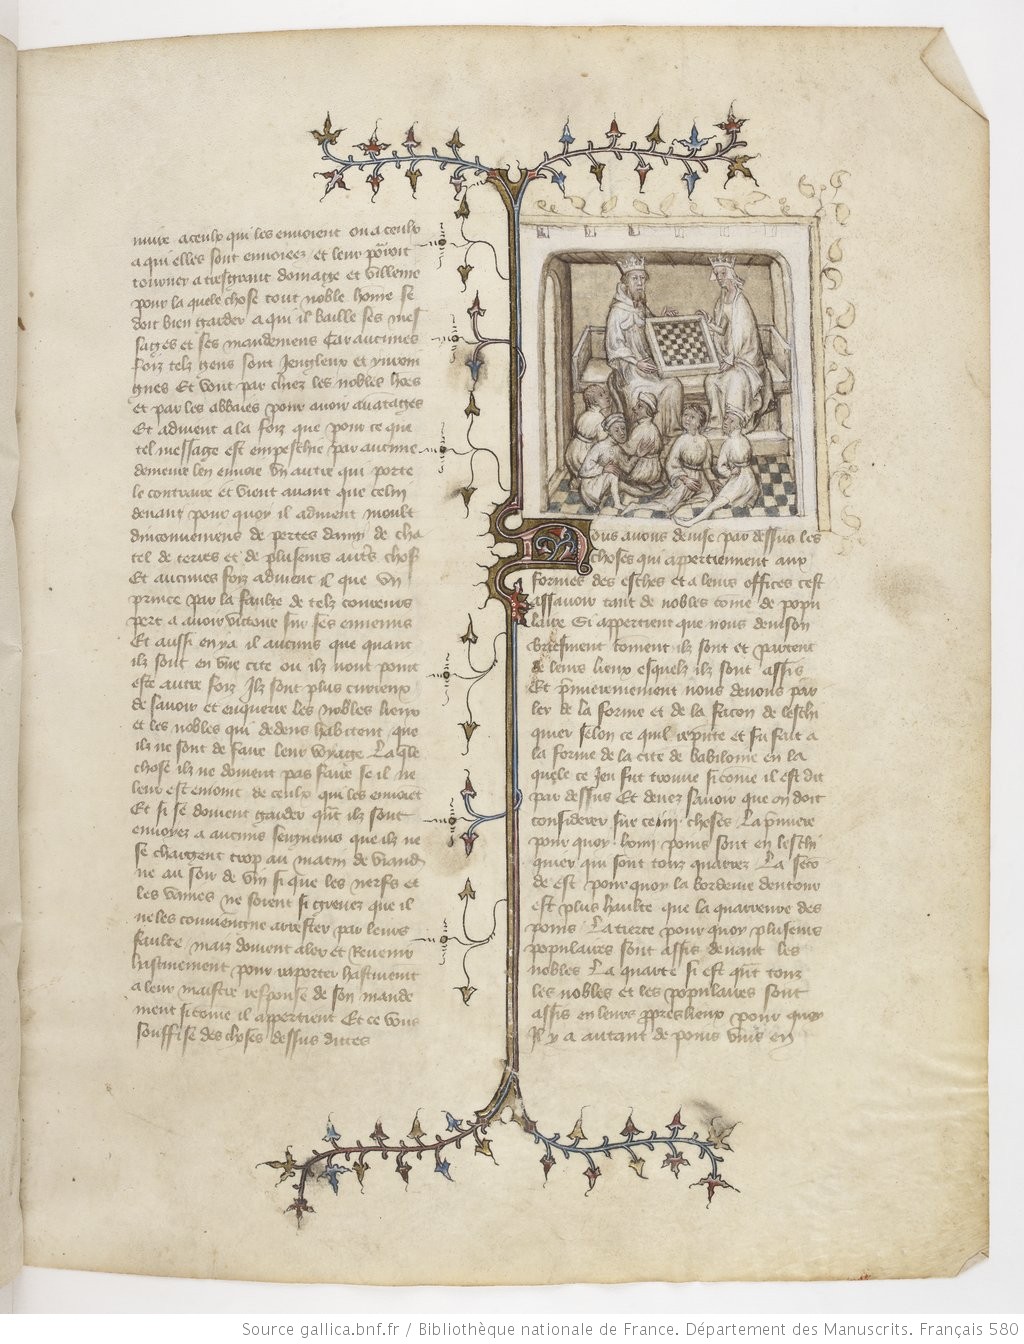 nuire a ceulx qui les envoient ou a ceulx
a qui elles sont envoiees et leur pourroit
tourner a tresgrant domage et villenie
pour la quele chose tout noble home se
doit bien garder a qui il baille ses mes
sages et ses mandemens Car aucunes
foiz telz gens sont Jengleux et yvroin
gnes Et vont par chiez les nobles hoes
et par les abbaies pour avoir avatages
Et advient a la foiz que pour ce que
tel message est empeschie par aucune
demeure len envoie un autre qui porte
le contraire et vient avant que celui
devant pour quoy il advient moult
dinconveniens de pertes damis de cha
tel de terres et de plusieurs autres choses
Et aucunes foiz advient il que un
prince par la faulte de telz coureurs
pert a avoir victoire sur ses ennemis
Et aussi en ya il aucuns que quant
ilz sont en une cite ou ilz nont point
este autre foiz Ilz sont plus curieux
de savoir et enquerir les nobles lieux
et les nobles qui dedens habitent que
ilz ne sont de faire leur voyage La qle
chose ilz ne doivent pas faire se il ne
leur est enjoint de ceulx qui les envoiet
Et si se doivent garder qnt ilz sont
envoyez a aucuns seigneurs que ilz ne
se chargent trop au matin de viand
ne au soir de vin si que les nerfs et
les vaines ne soient si grevez que il
ne les conviengne arrester par leurs
faulte mais doivent aler et Revenir
hastivement pour raporter hastivemt
a leur maistre response de son mande
ment si come il appartient Et ce vous
souffise des choses dessus dites
Nous avons devise par dessus les
choses qui appertiennent aux
formes des esches et a leurs offices cest
assavoir tant de nobles come de popu
laire Si appertient que nous devison
briefment coment ilz sont et partent
de leurs lieux esquelz ilz sont assis
Et premierement nous devons par
ler de la forme et de la facon de leschi
quier selon ce quil repnte et fu fait a
la forme de la cite de babiloine en la
quele ce Jeu fut trouve si come il est dit
par dessus Et devez savoir que on doit
considerer sur ce iiii choses La pmiere
pour quoy lxiiii poins sont en leschi
quier qui sont touz quarrez La seco
de est pour quoy la bordeure dentour
est plus haulte que la quarreure des
poins La tierce pour quoy plusieurs
populaires sont assis devant les
nobles La quarte si est qnt touz
les nobles et les populaires sont
assis en leurs propres lieux pour quoy
Il y a autant de poins vuis en
Source gallica.bnf.fr / Bibliothèque nationale de France. Département des Manuscrits. Français 580